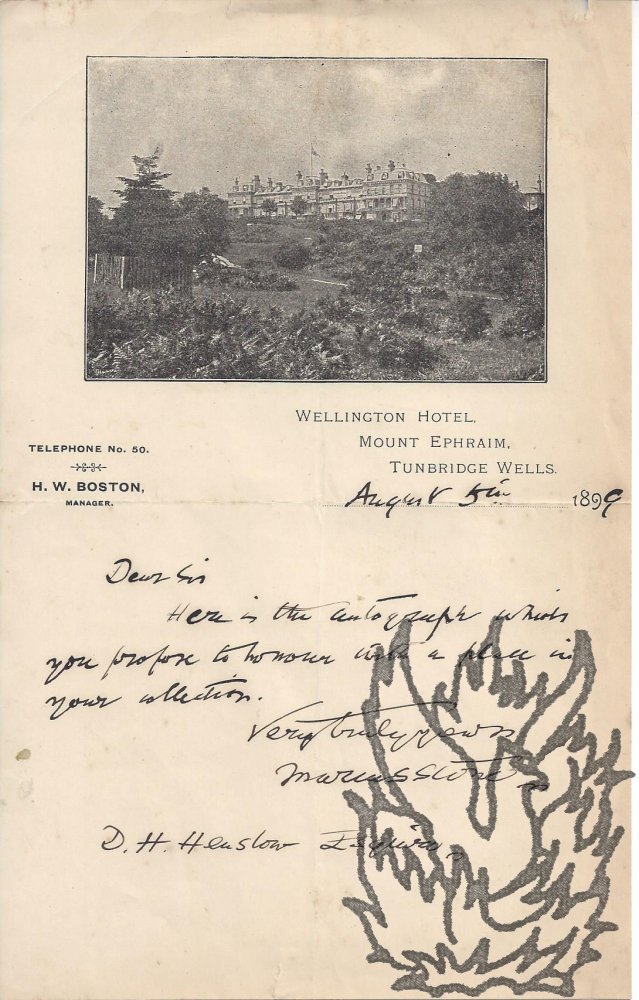 WELLINGTON HOTEL,
MOUNT EPHRAIM,
TUNBRIDGE WELLS.
TELEPHONE No. 50.
H. W. BOSTON,
MANAGER.
August 5th 1899
Dear Sir
Here is the autograph which
you propose to honour with a place in
your collection.
Very truly yours
Marcus Stone
D. H. Henslow Esquire